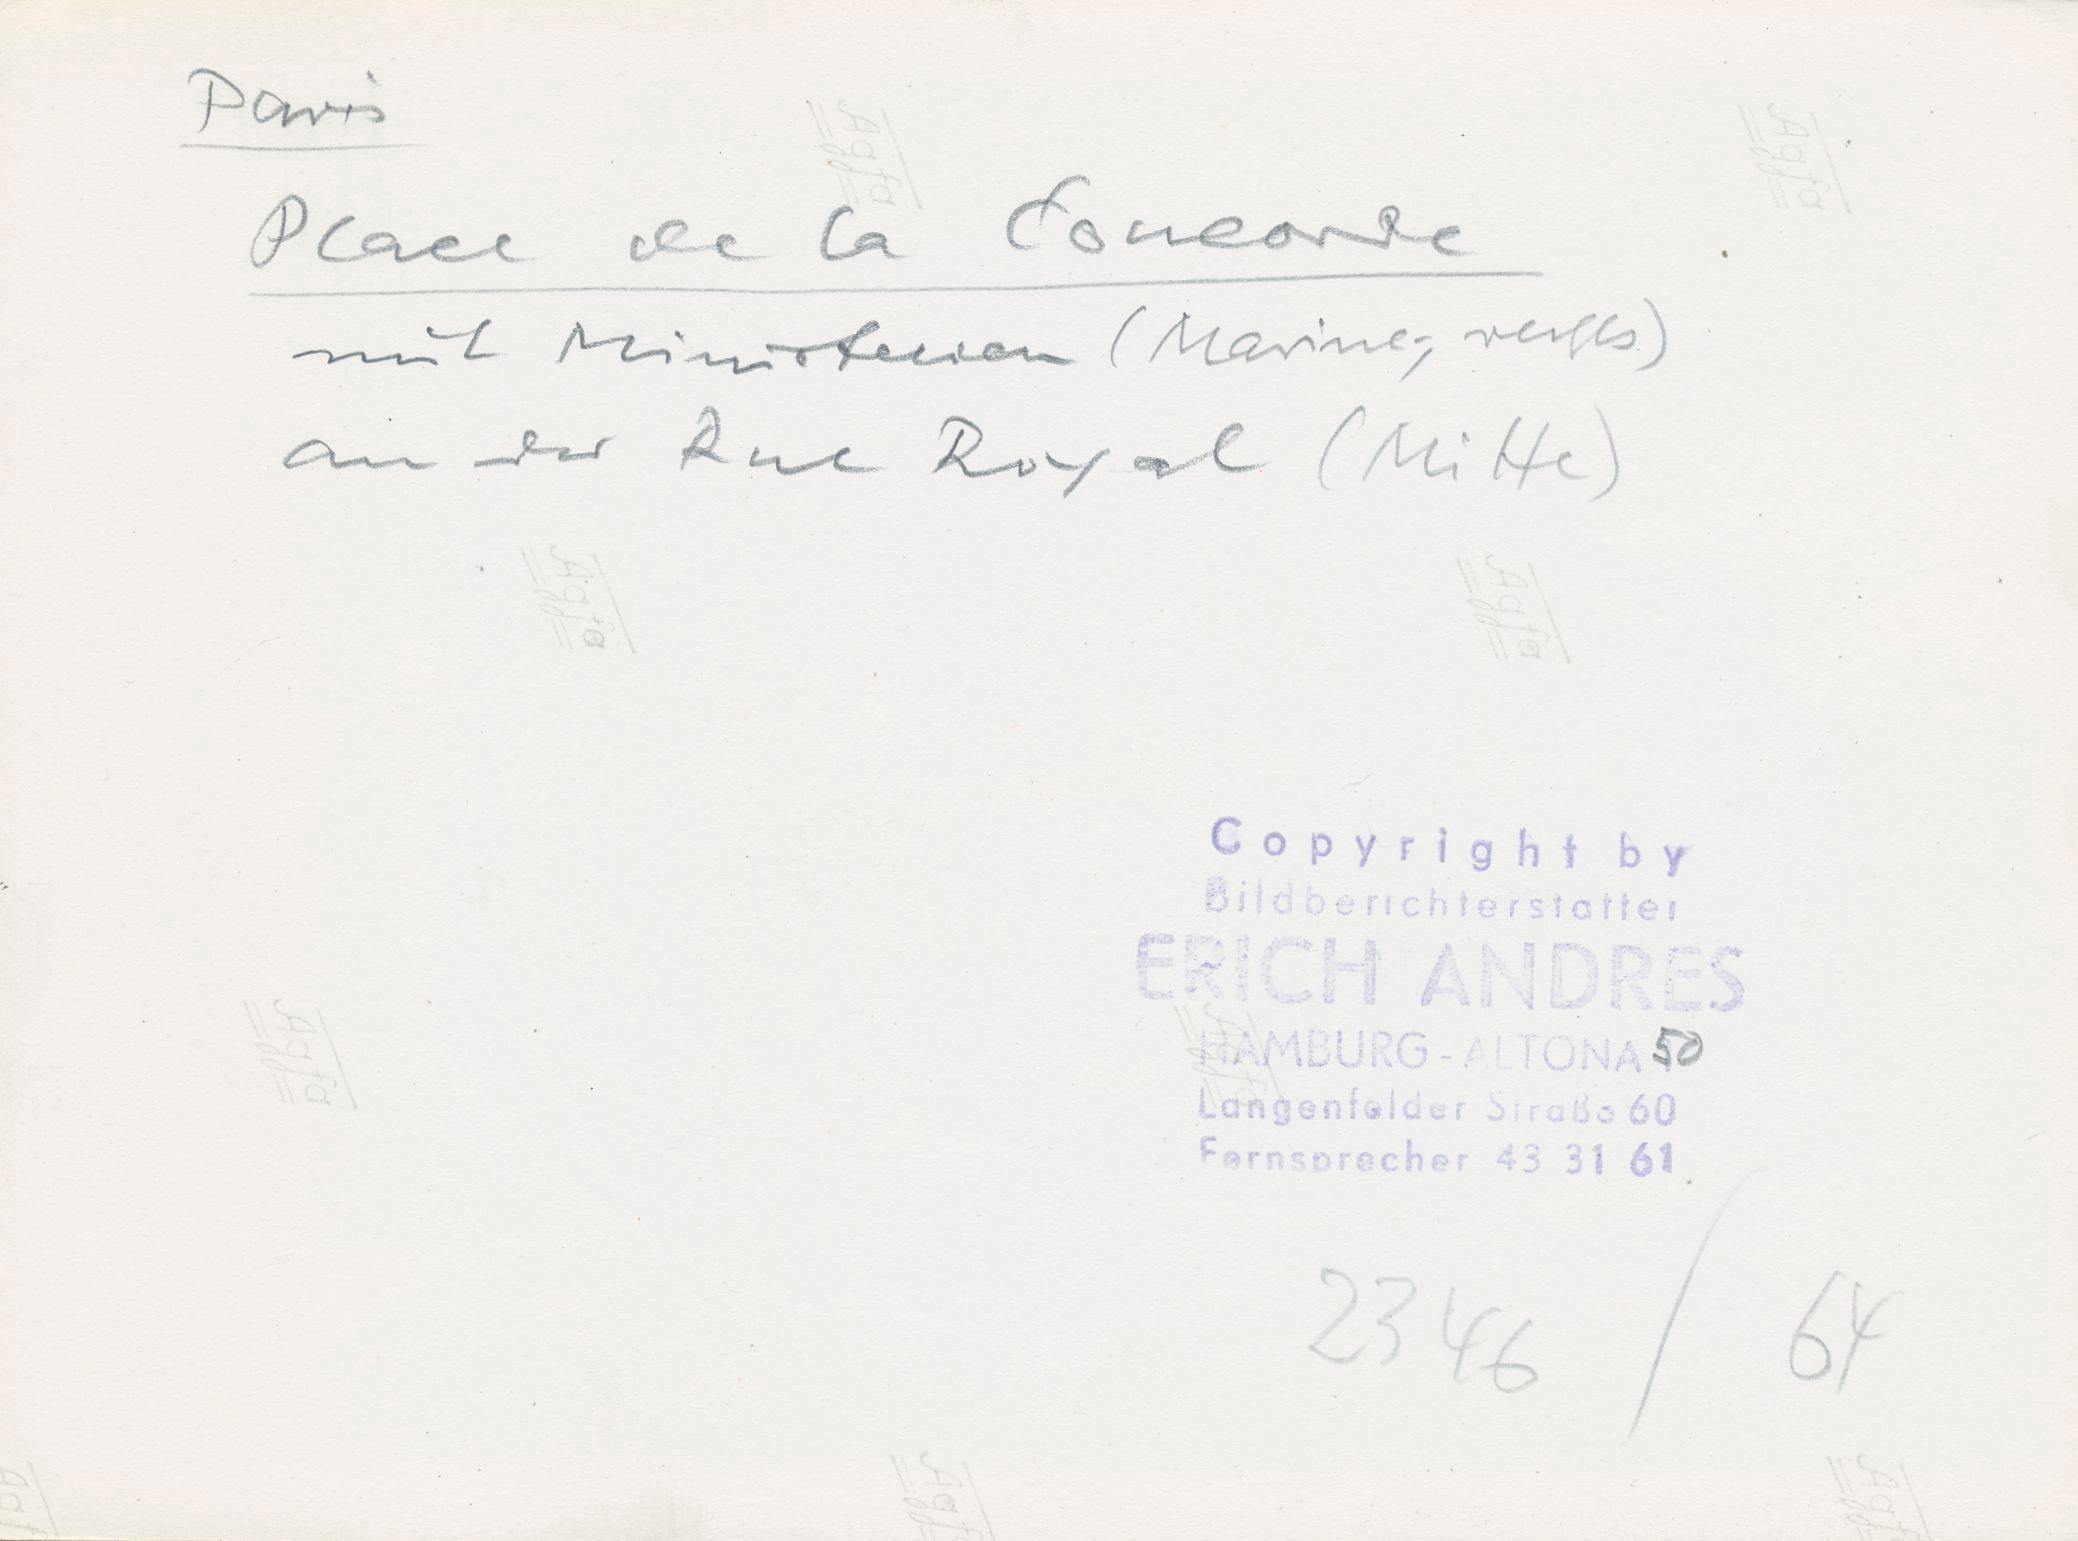 Paris
Place de la Concorde
mit Ministerien (Marine, rechts)
an der Rue Royal (Mitte)
Agfa
Agfa
Agfa
Agfa
Copyright by
Bildberichterstatter
ERICH ANDRES
HAMBURG-ALTONA 50
Langenfelder Straße 60
Fernsprecher 43 31 61
Agfa
Agfa
2346 / 64
Agf
Agfa
Agfa